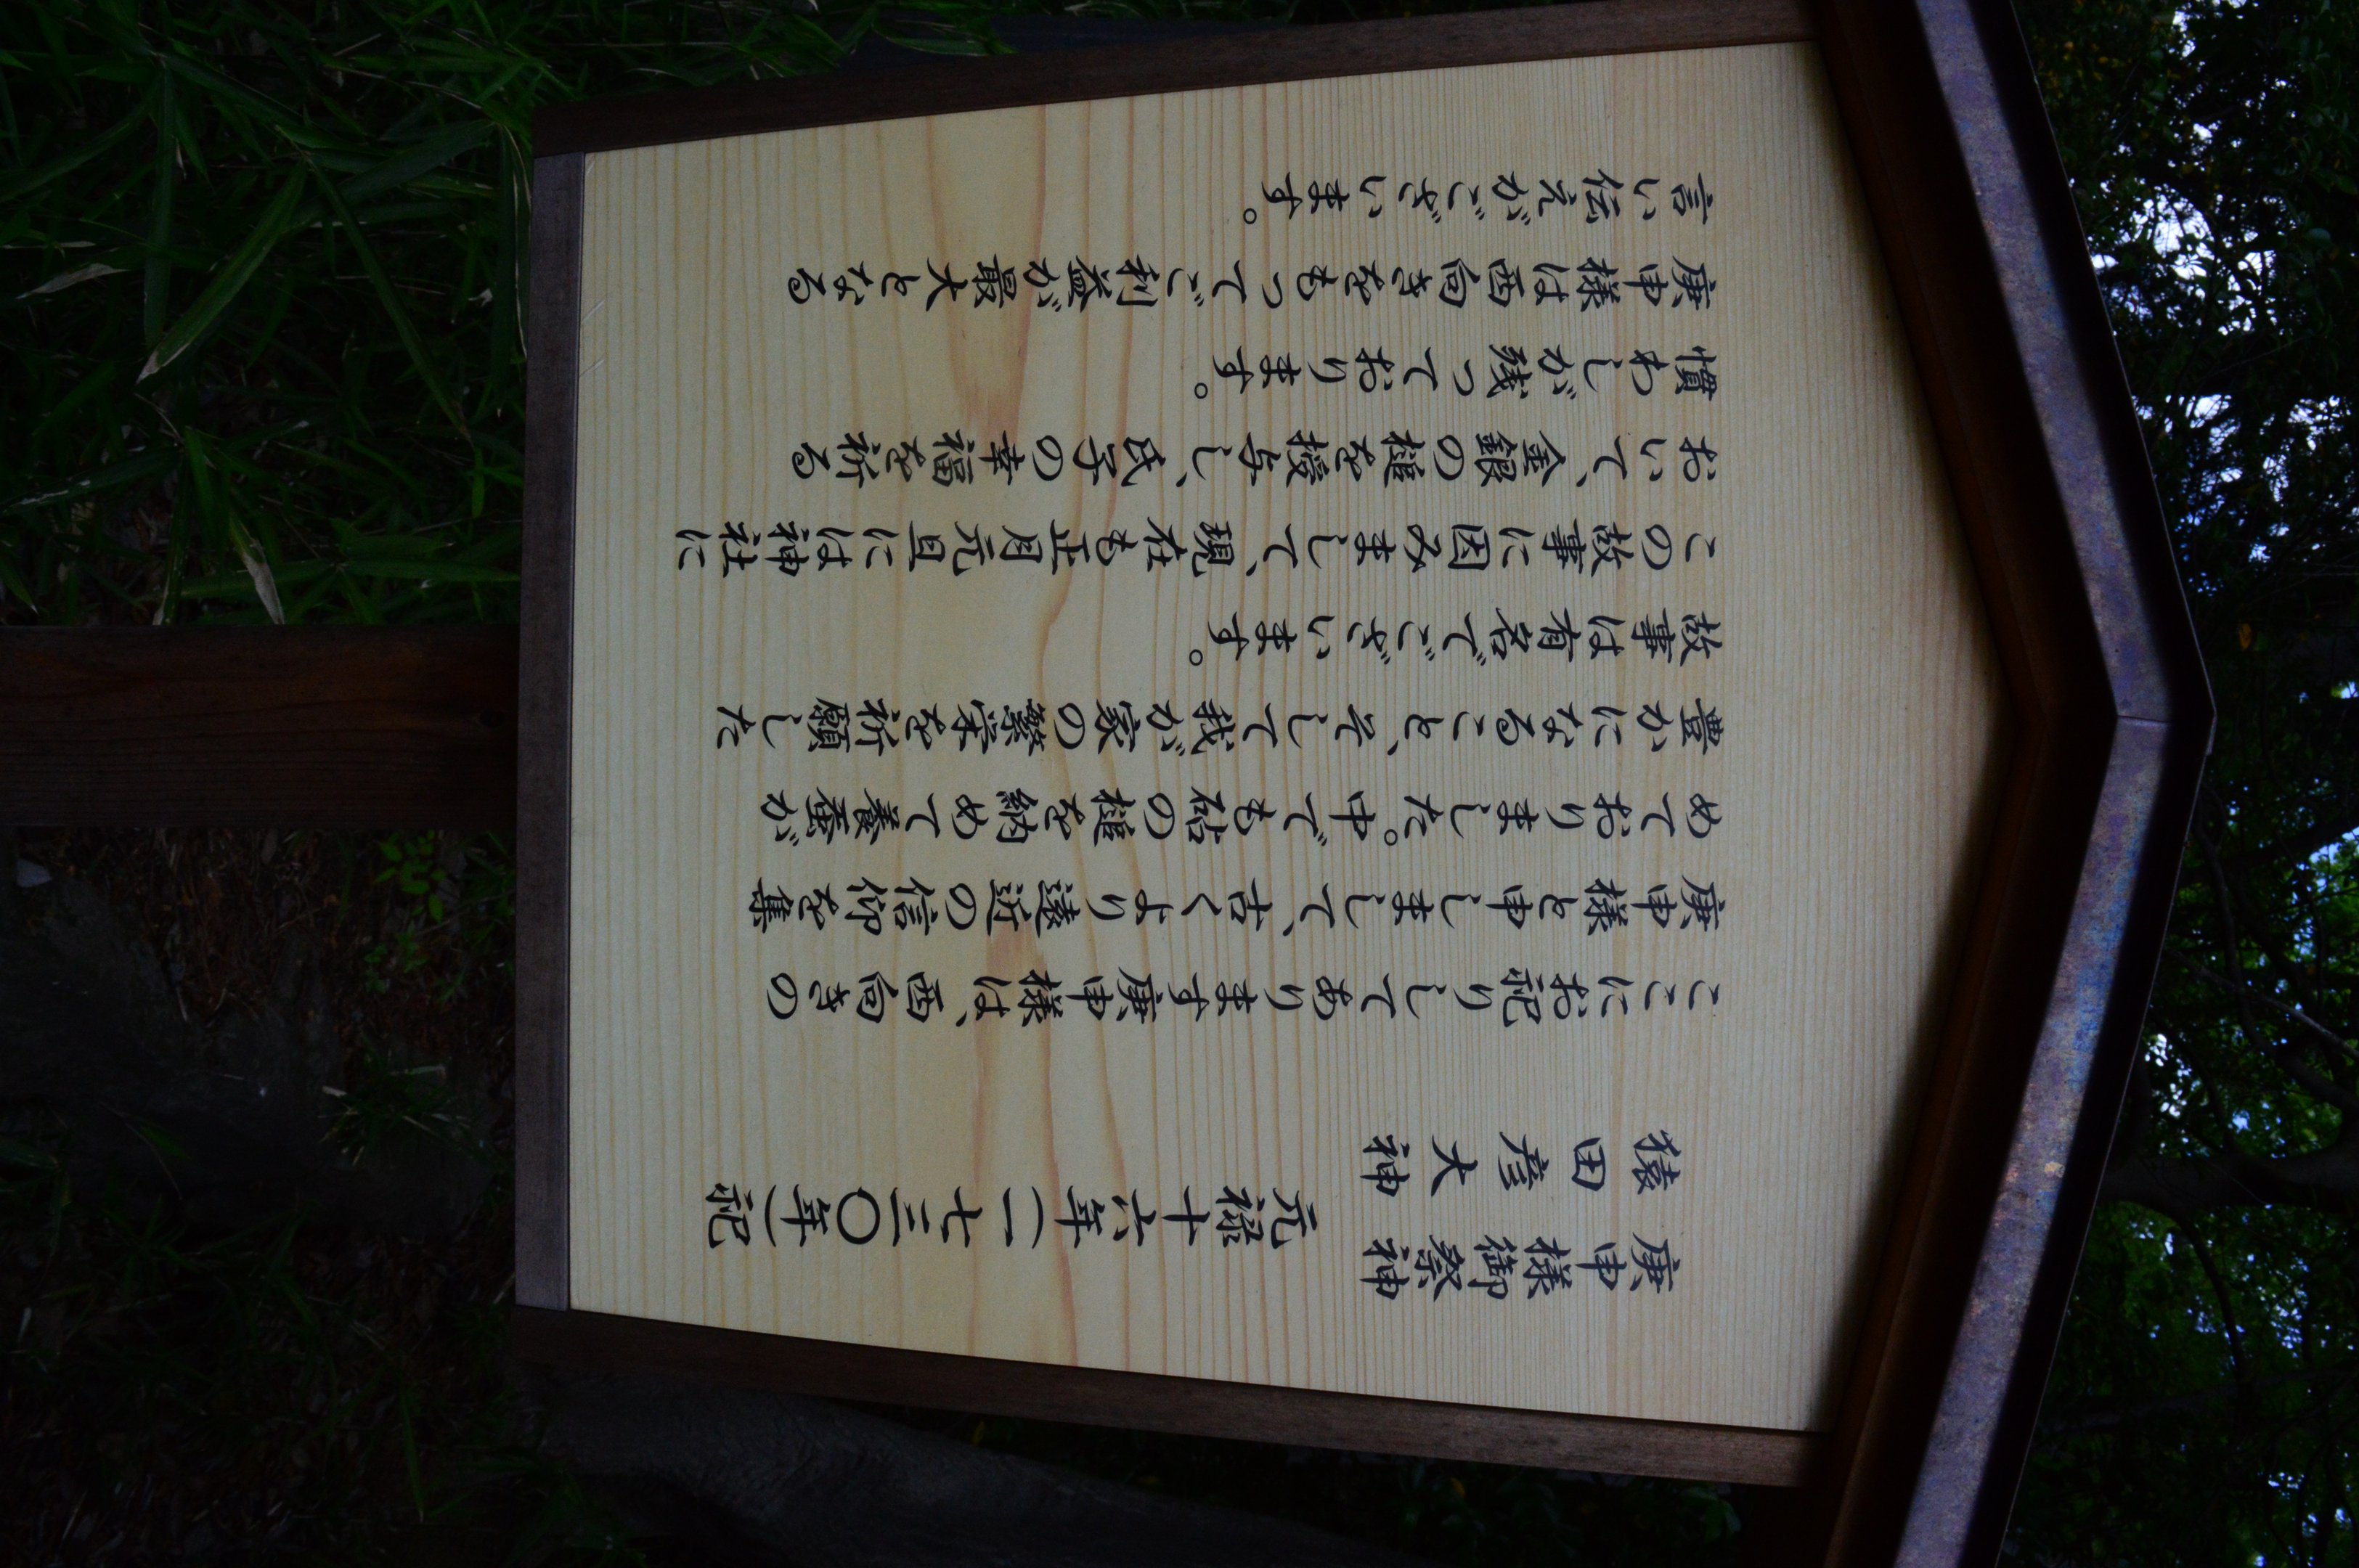 庚申様御祭神
猿田彦大神
元禄十六年(一七三〇年)祀
ここにお祀りしてあります庚申様は、西向きの
庚申様と申しまして、古くより遠近の信仰を集
めておりました。中でも砧の槌を納めて養蚕が
豊かになること、そして我が家の繁栄を祈願した
故事は有名でございます。
この故事に因みまして、現在も正月元旦には神社に
おいて、金銀の槌を授与し、氏子の幸福を祈る
慣わしが残っております。
庚申様は西向きをもってご利益が最大となる
言い伝えがございます。